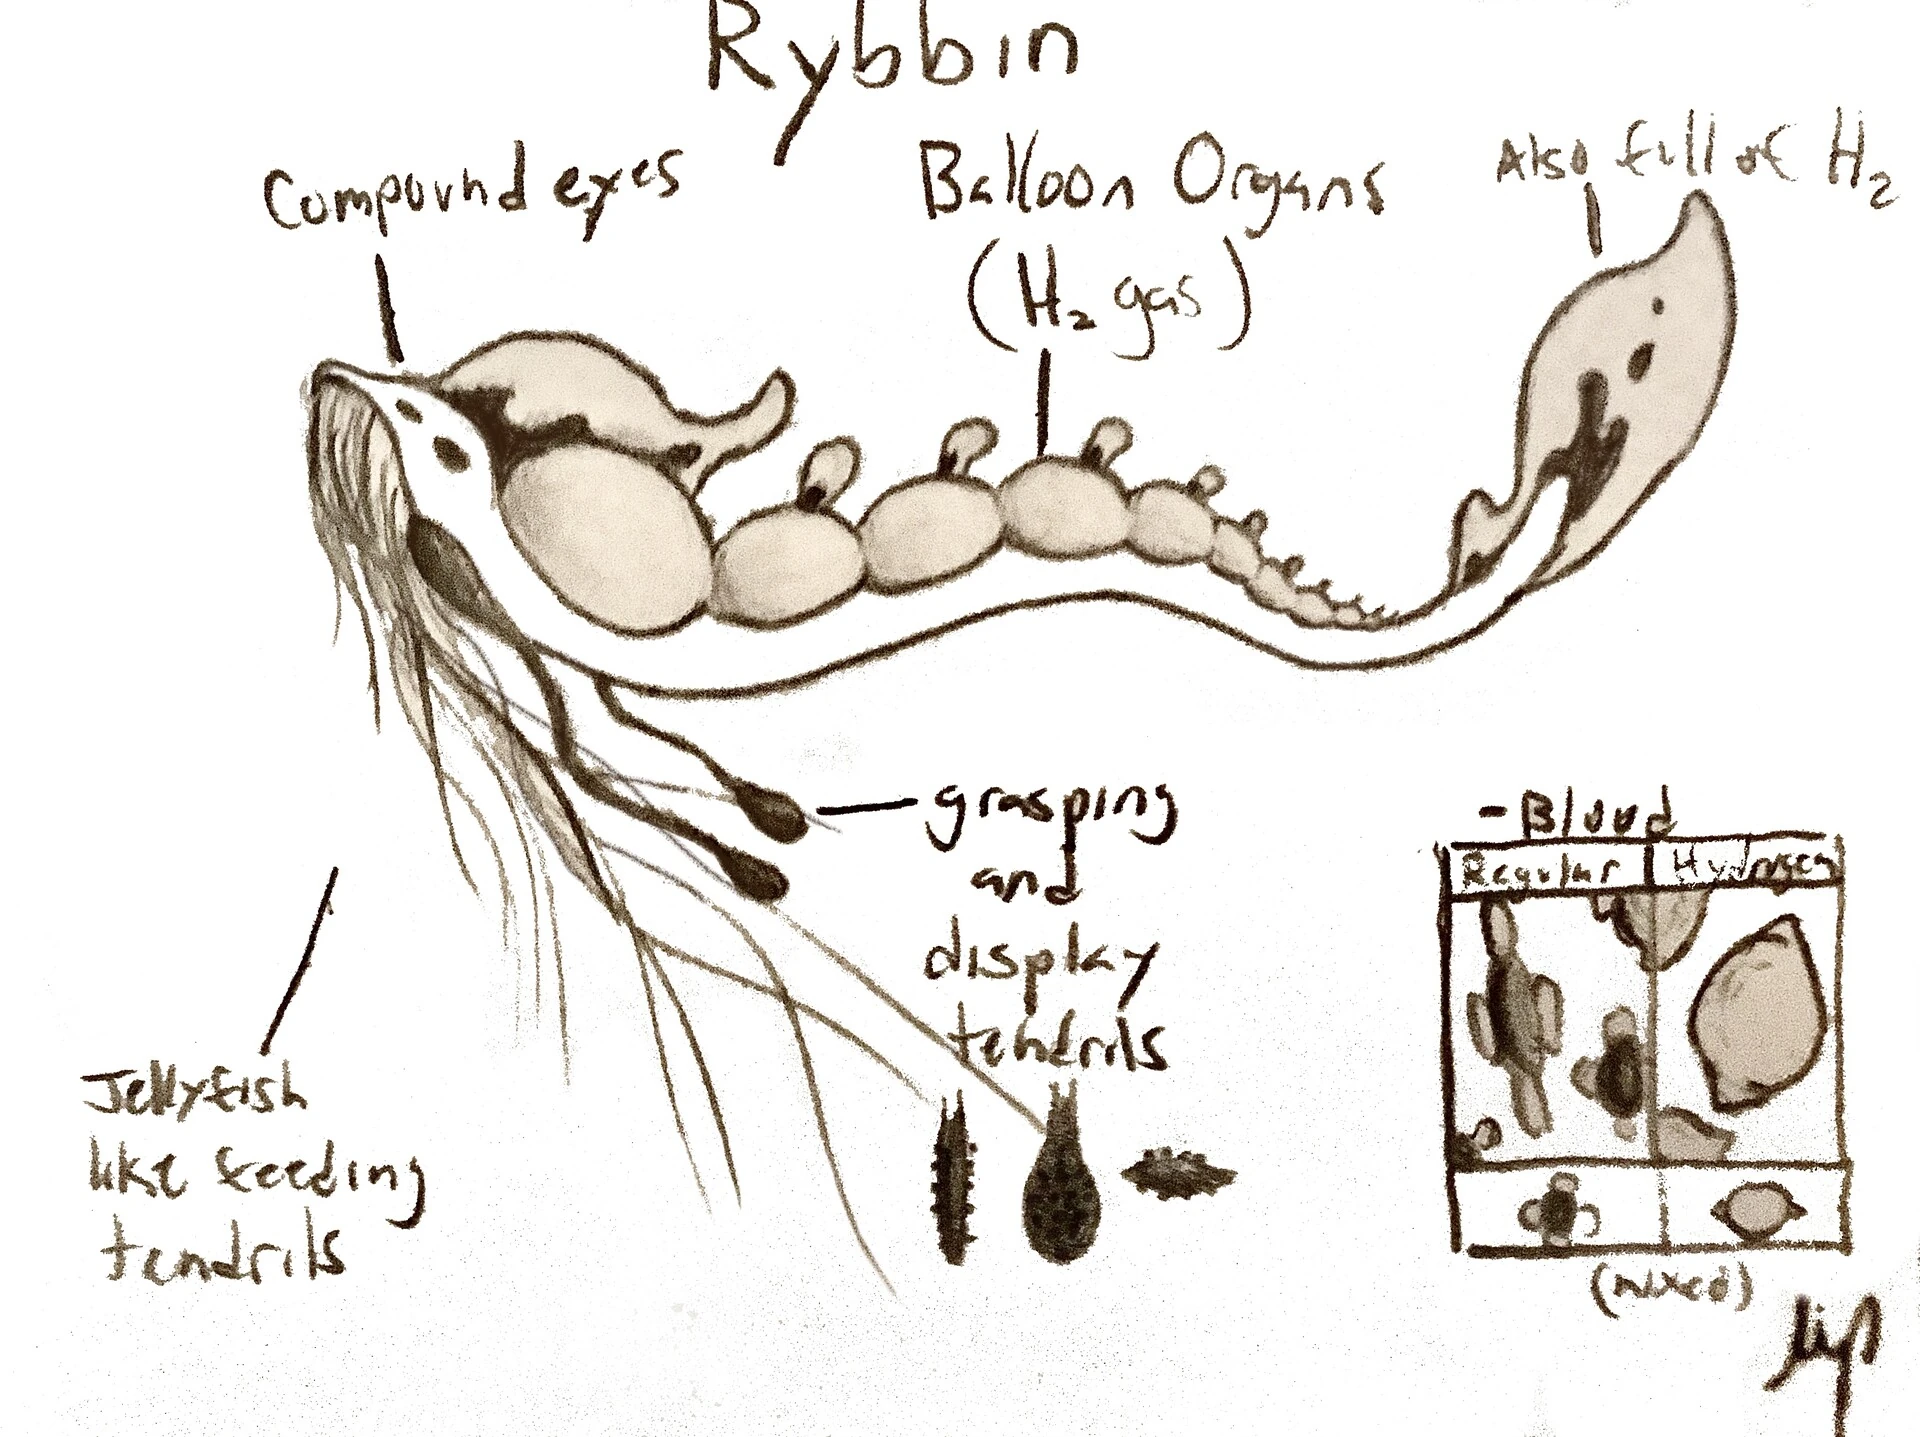 Rybbin
Compound eyes
Balloon Organs
(H₂ gas)
Also full of H₂
grasping
and
display
tendrils
Jellyfish
like feeding
tendrils
- Blood
Regular Hydrogen
(mixed)